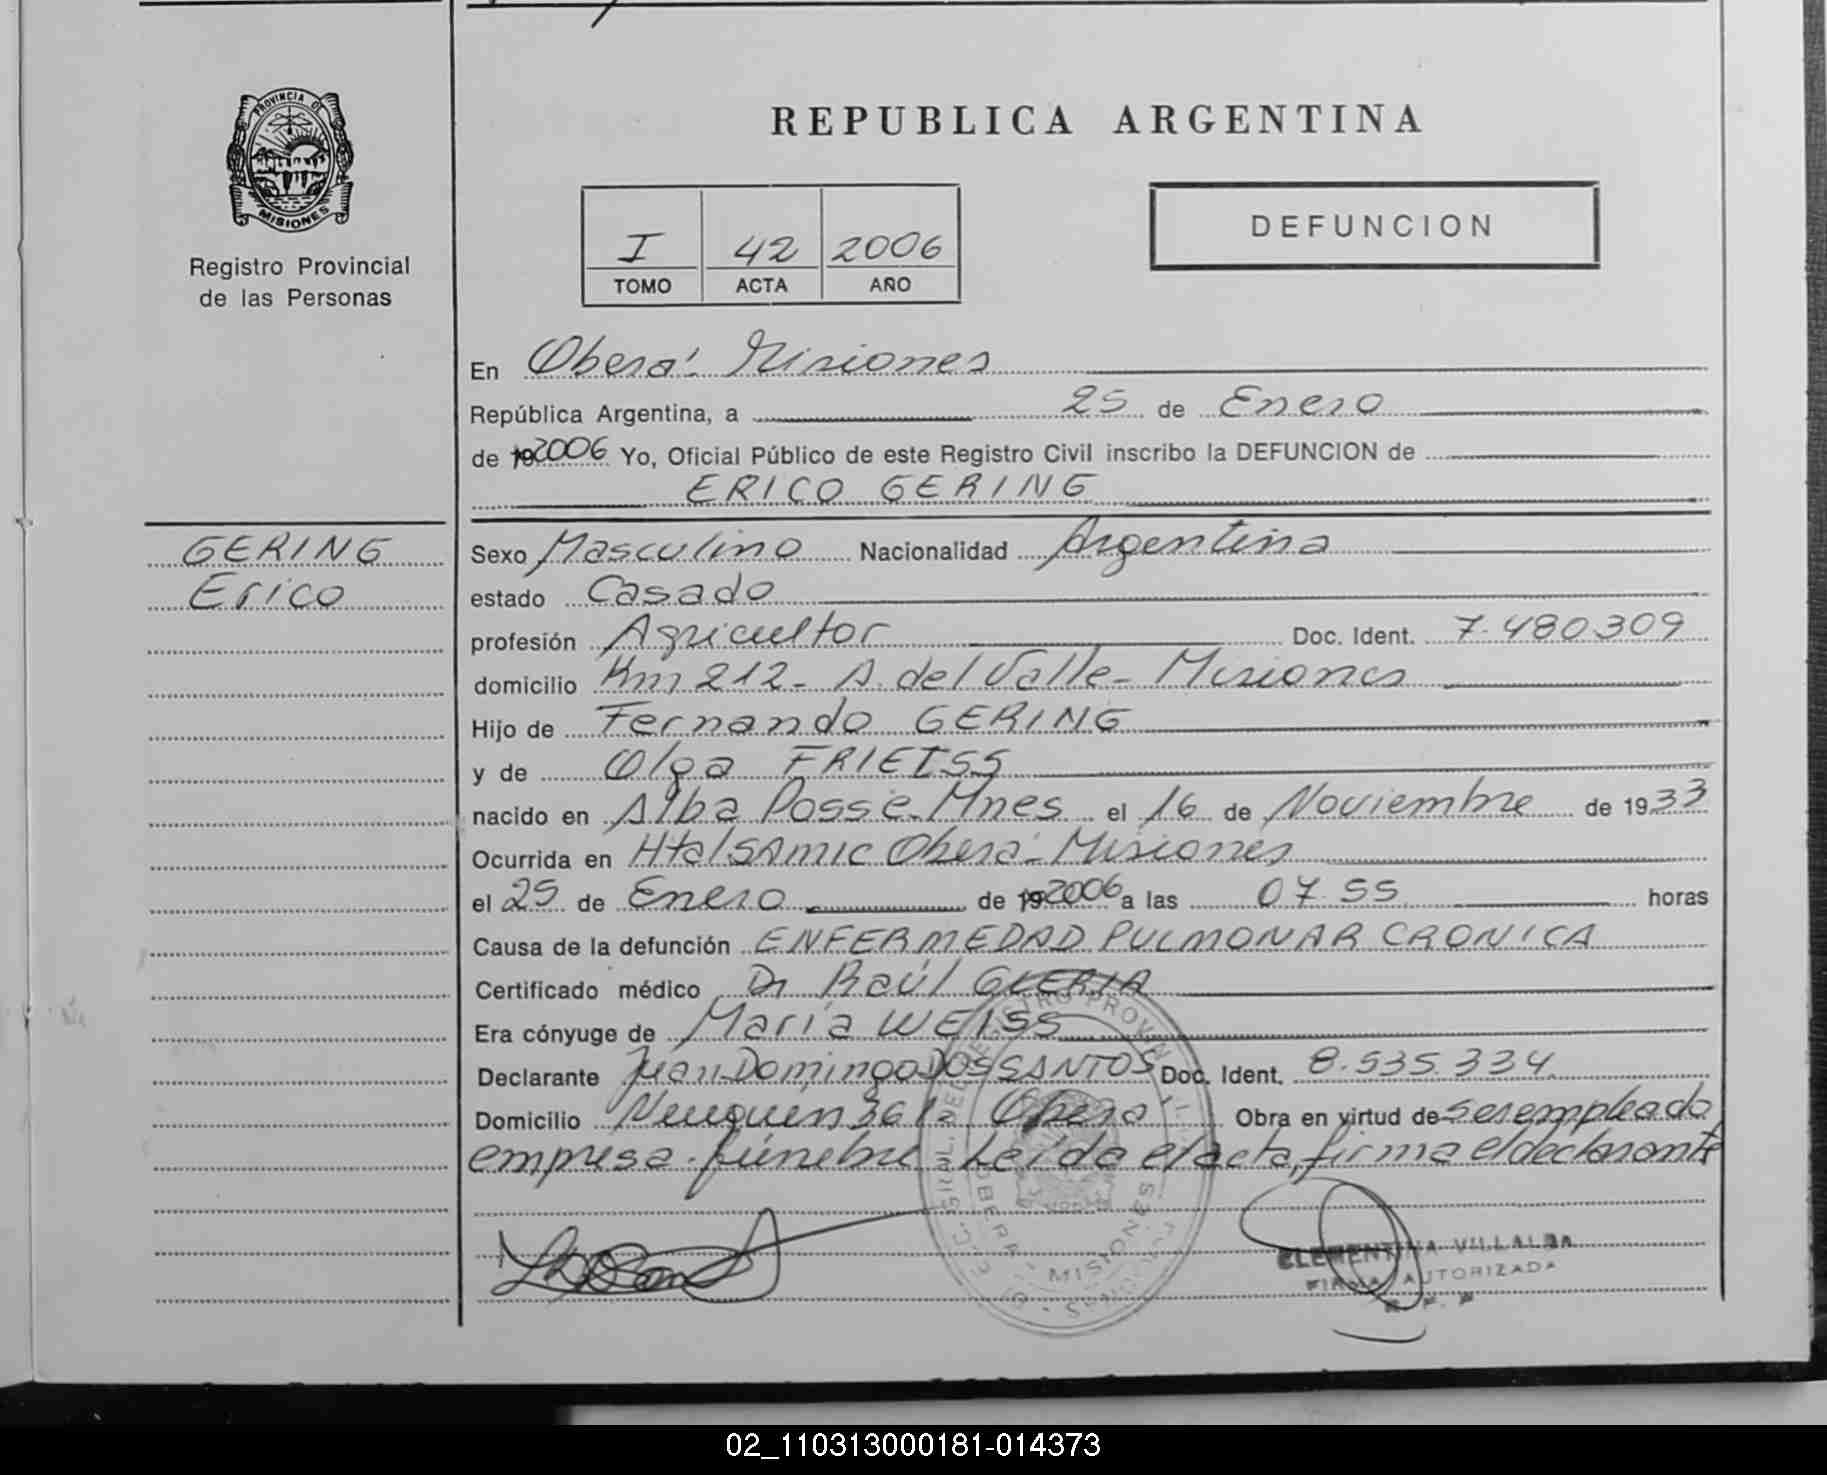 PROVINCIA DE
MISIONES
Registro Provincial
de las Personas
REPUBLICA ARGENTINA
I 42 2006
TOMO ACTA AÑO
DEFUNCION
En Oberá - Misiones
República Argentina, a 25 de Enero
de 192006 Yo, Oficial Público de este Registro Civil inscribo la DEFUNCION de
ERICO GERING
GERING
Erico
Sexo Masculino Nacionalidad Argentina
estado Casado
profesión Agricultor Doc. Ident. 7.480309
domicilio Km 212 - A. del Valle - Misiones
Hijo de Fernando GERING
y de Olga FRIEISS
nacido en Alba Posse - Mnes el 16 de Noviembre de 1933
Ocurrida en Htal SAMIC Oberá - Misiones
el 25 de Enero de 192006 a las 07.55 horas
Causa de la defunción ENFERMEDAD PULMONAR CRONICA
Certificado médico Dr Raúl GLERIA
Era cónyuge de María WEISS
Declarante Juan Domingo DOS SANTOS Doc. Ident. 8.535.334
Domicilio Neuquén 361 Oberá Obra en virtud de ser empleado
empresa fúnebre Leída el acta, firma el declarante
OBERA
MISIONES
CLEMENTINA VILLALBA
FIRMA AUTORIZADA
R. P. P.
02_110313000181-014373